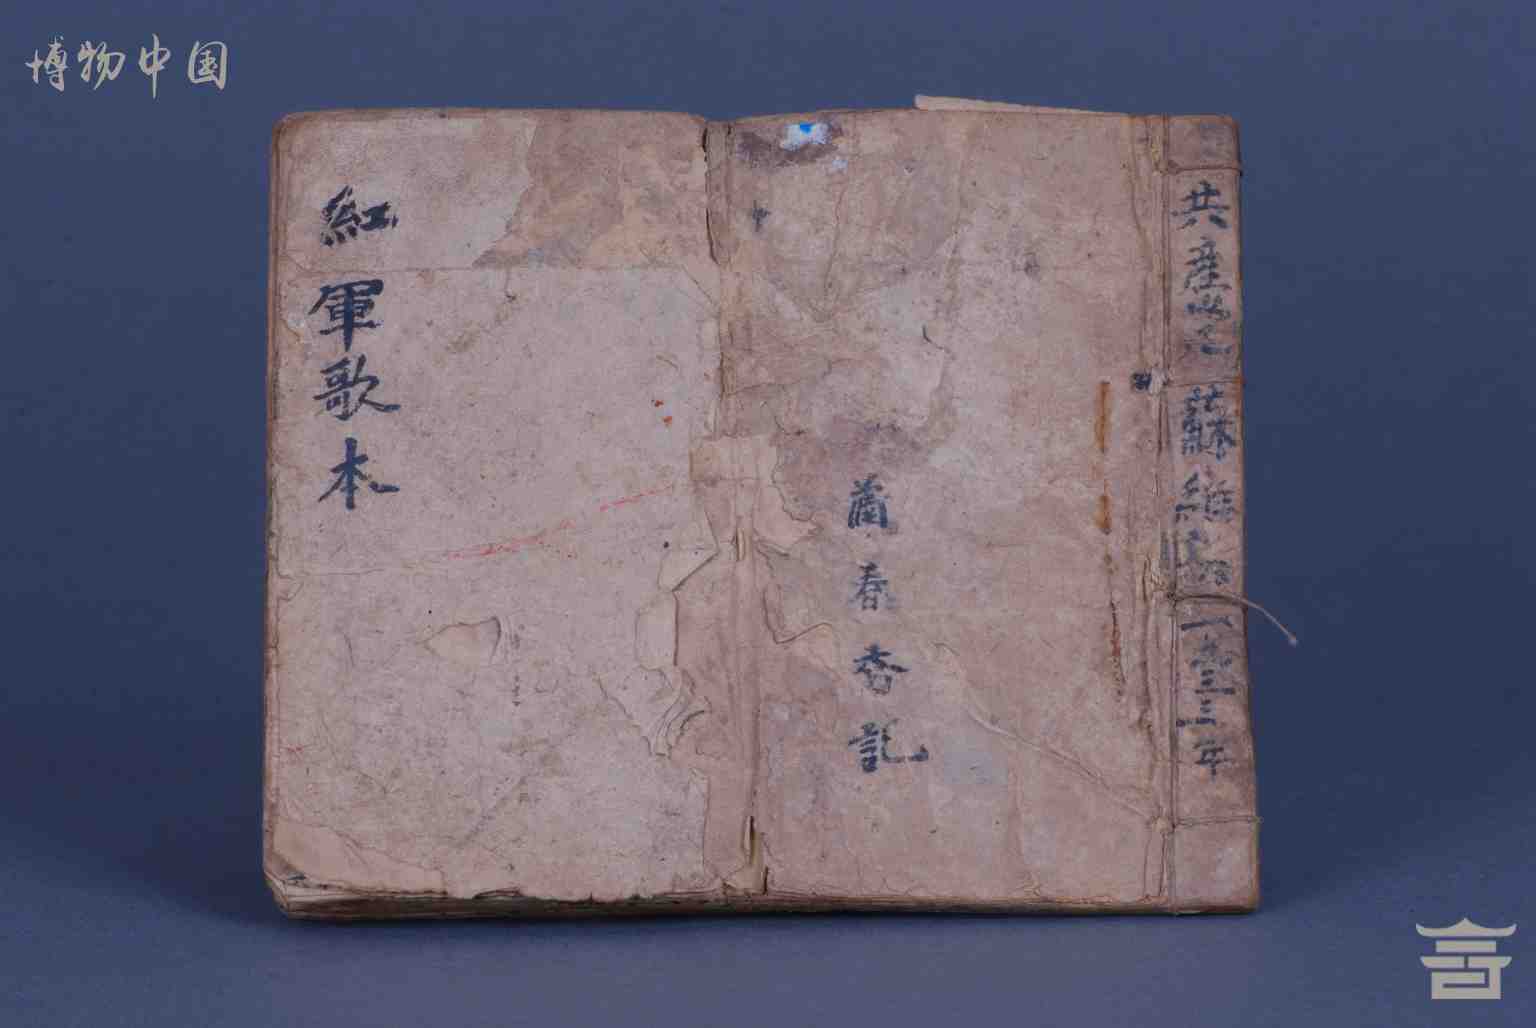 博物中国
共產党 蘇維埃 一九三三年
蕭春香記
紅軍歌本